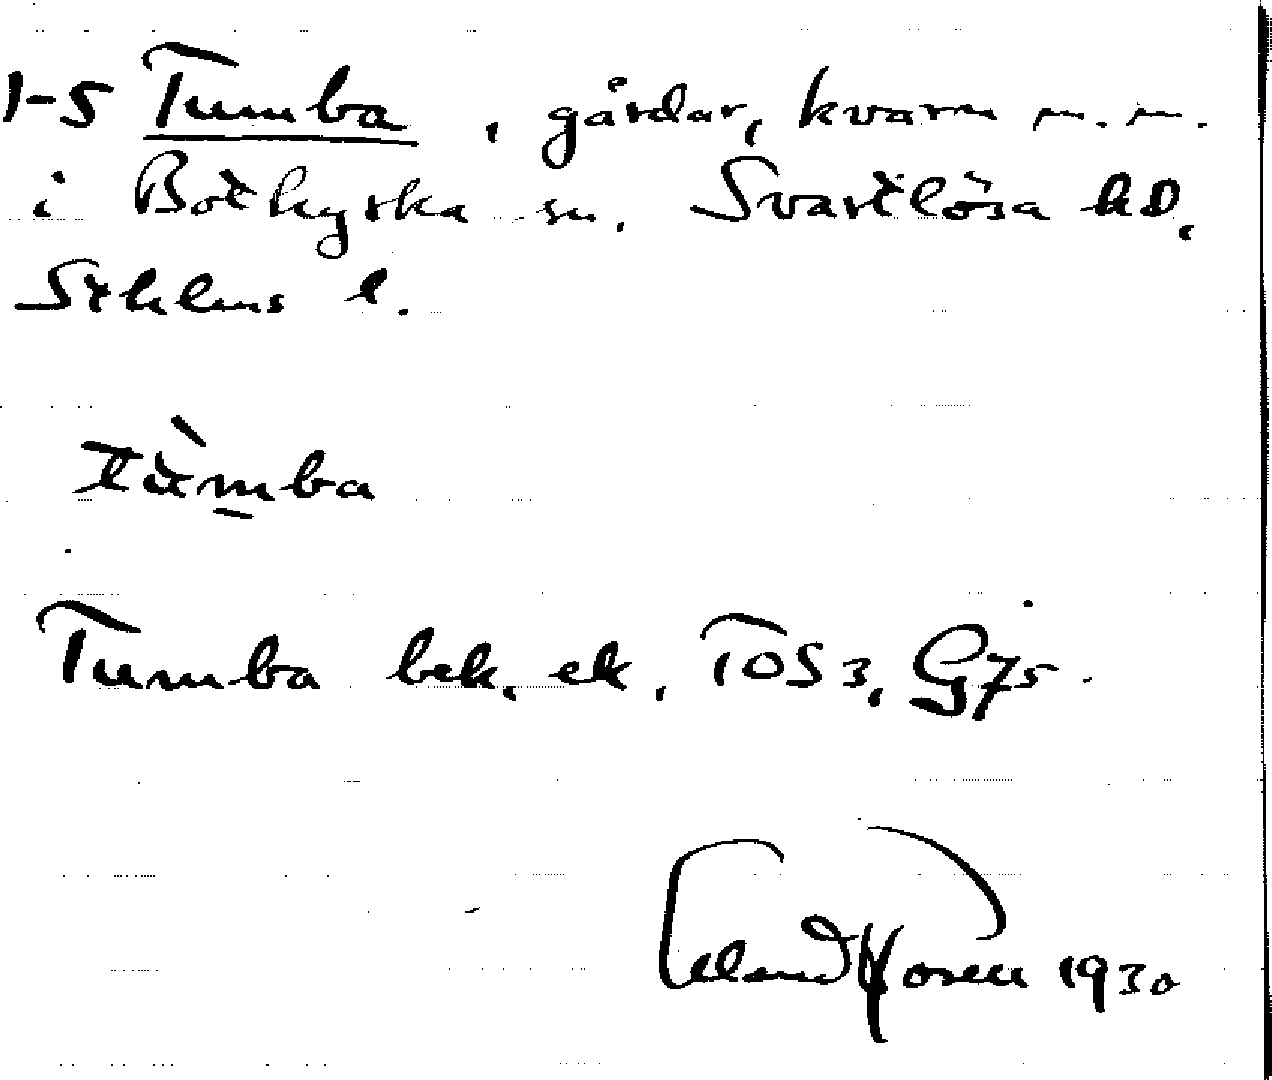 1-5 Tumba, gårdar, kvarn m.m.
i Botkyrka sn. Svartlösa hd,
Sthlms l.
tu̇̀m̱ba
Tumba bek, ek, TOS 3, G75.
Erland Rosell 1930